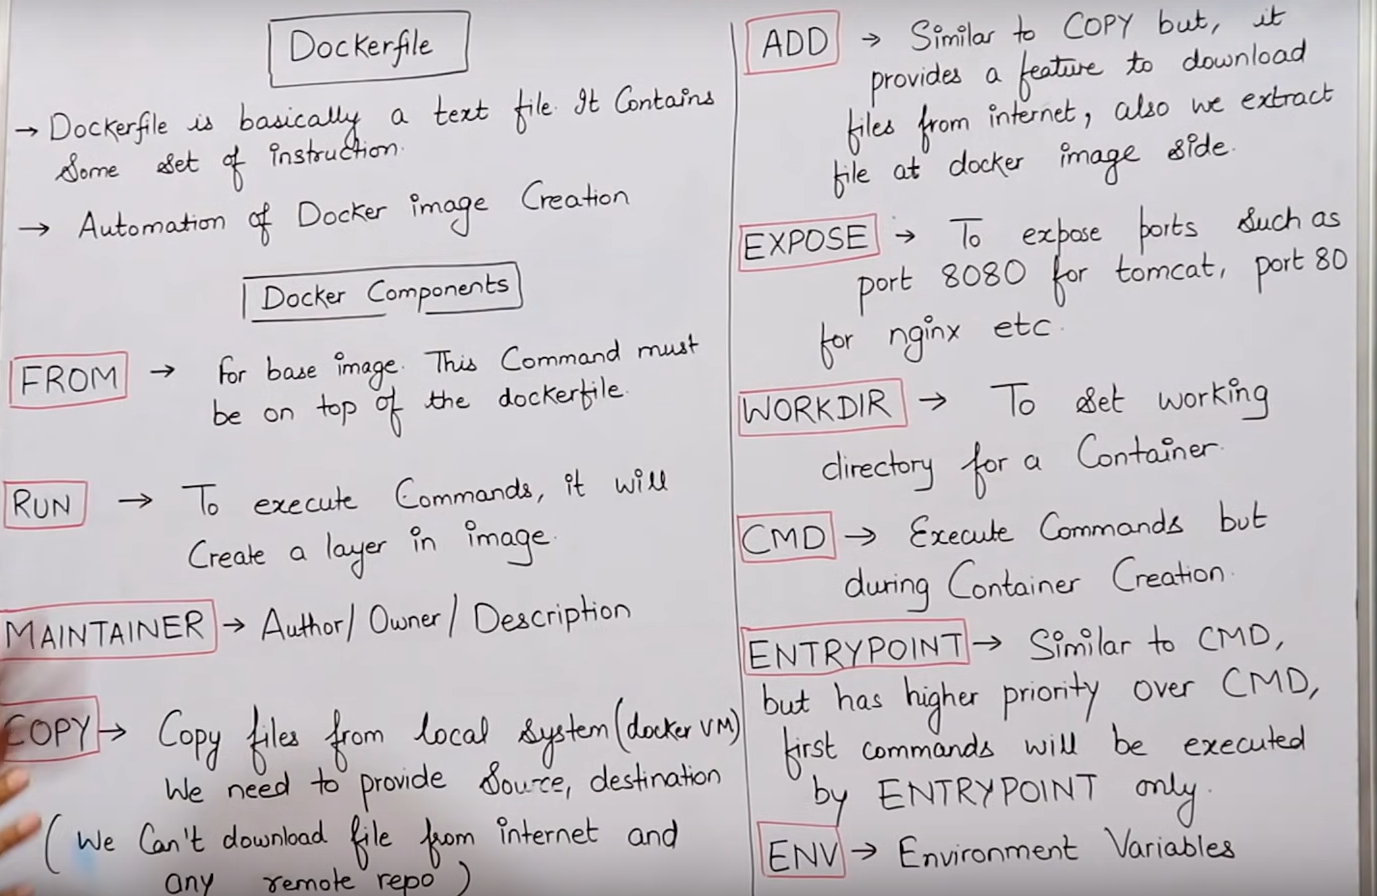 Dockerfile
→ Dockerfile is basically a text file. It Contains
Some set of instruction.
→ Automation of Docker image Creation
Docker Components
FROM → for base image. This Command must
be on top of the dockerfile.
RUN → To execute Commands, it will
Create a layer in image.
MAINTAINER → Author/ Owner/ Description
COPY → Copy files from local system (docker VM)
We need to provide Source, destination
( We Can't download file from internet and
any remote repo )
ADD → Similar to COPY but, it
provides a feature to download
files from internet, also we extract
file at docker image side.
EXPOSE → To expose ports such as
port 8080 for tomcat, port 80
for nginx etc.
WORKDIR → To set working
directory for a Container.
CMD → Execute Commands but
during Container Creation.
ENTRYPOINT → Similar to CMD,
but has higher priority over CMD,
first commands will be executed
by ENTRYPOINT only.
ENV → Environment Variables